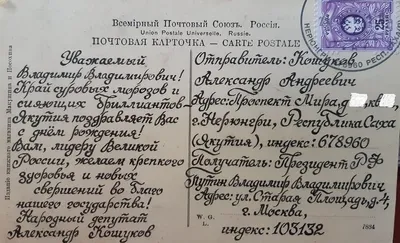 Всемірный Почтовый Союзъ. Россія.
Union Postale Universelle. Russie.
ПОЧТОВАЯ КАРТОЧКА – CARTE POSTALE
Уважаемый
Владимир Владимирович!
Край суровых морозов и
сияющих Бриллиантов-
Якутия поздравляет Вас
с днём рождения!
Вам, лидеру Великой
России, желаем крепкого
здоровья и новых
свершений во благо
нашего государства!
Народный депутат
Александр Кошуков
Отправитель: Кошуков
Александр Андреевич
Адрес: Проспект Мира, д
г. Нерюнгри, Республика Саха
(Якутия), индекс: 678960
Получатель: Президент РФ
Путин Владимир Владимирович
Адрес: ул. Старая Площадь, д 4,
г. Москва,
индекс: 103132
W. G.
25